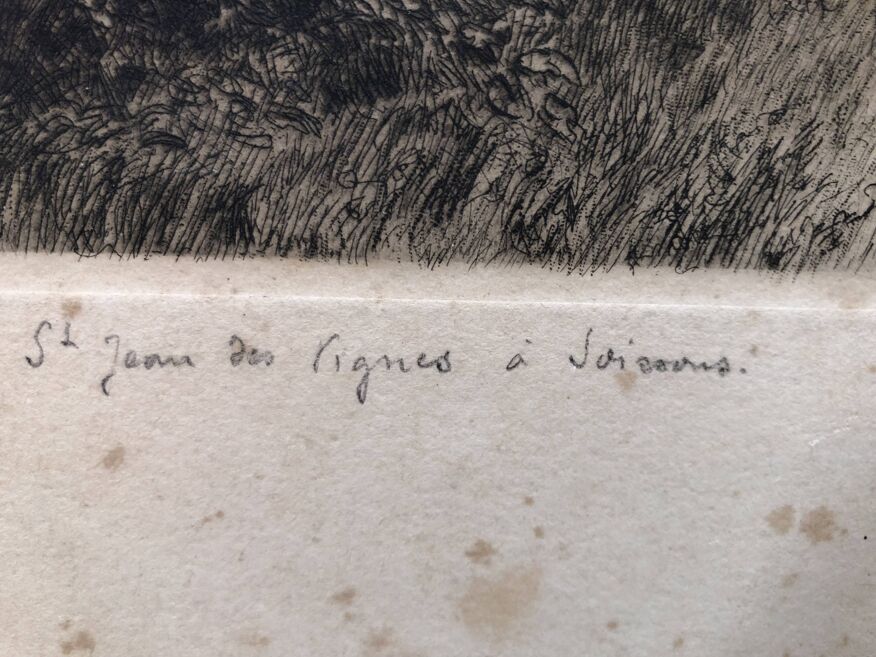 St Jean des Vignes à Soissons.